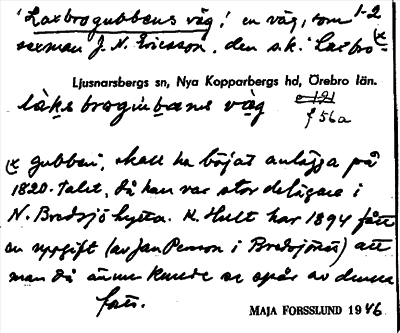 'Laxbrogubbens väg', en väg, som 1-2
sexman J. N. Ericsson, den s.k. 'Laxbro-
Ljusnarsbergs sn, Nya Kopparbergs hd, Örebro län.
f 56a
gubben', skall ha börjat anlägga på
1820-talet, då han var stor delägare i
N. Bredsjö hytta. K. Hult har 1894 fått
en uppgift (av Jan Persson i Bredsjönäs) att
man då ännu kunde se spår av denna
MAJA FORSSLUND 1946.